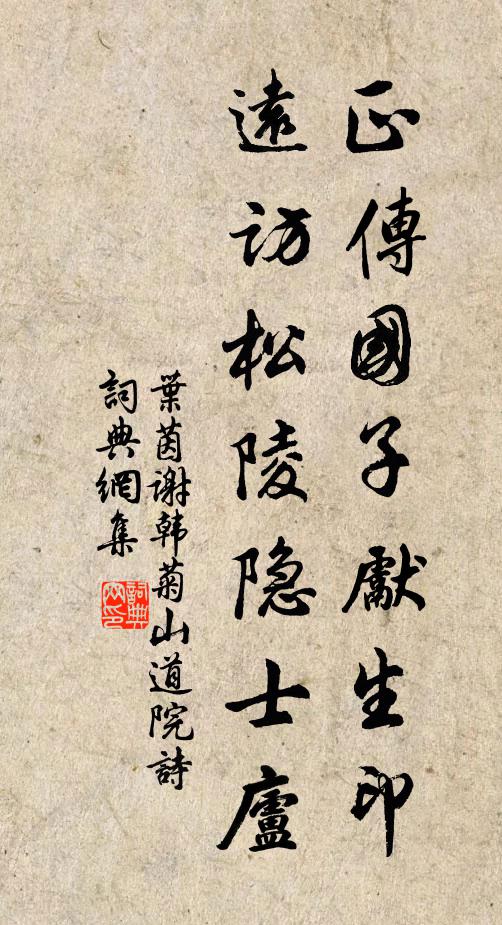 正傳國子獻生印
遠訪松陵隐士廬
葉茵谢韩菊山道院詩
詞典網集
詞典
网印